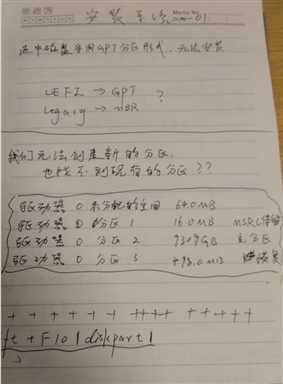 安装系统
选中磁盘采用GPT分区形式,无法安装
UEFI → GPT
Legacy → MBR ?
我们无法创建新的分区,
也找不到现有的分区??
驱动器 0 未分配的空间 64.0MB
驱动器 0 的分区1 16.0MB MSR(保留)
驱动器 0 分区 2 930.9GB 主分区
驱动器 0 分区 3 498.0MB
ft + F10 | diskpart |